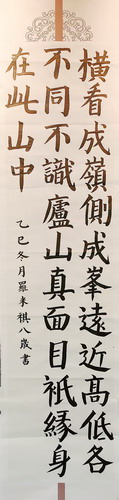 橫看成嶺側成峯遠近高低各
不同不識廬山真面目衹緣身
在此山中
乙巳冬月羅來祺八歲書